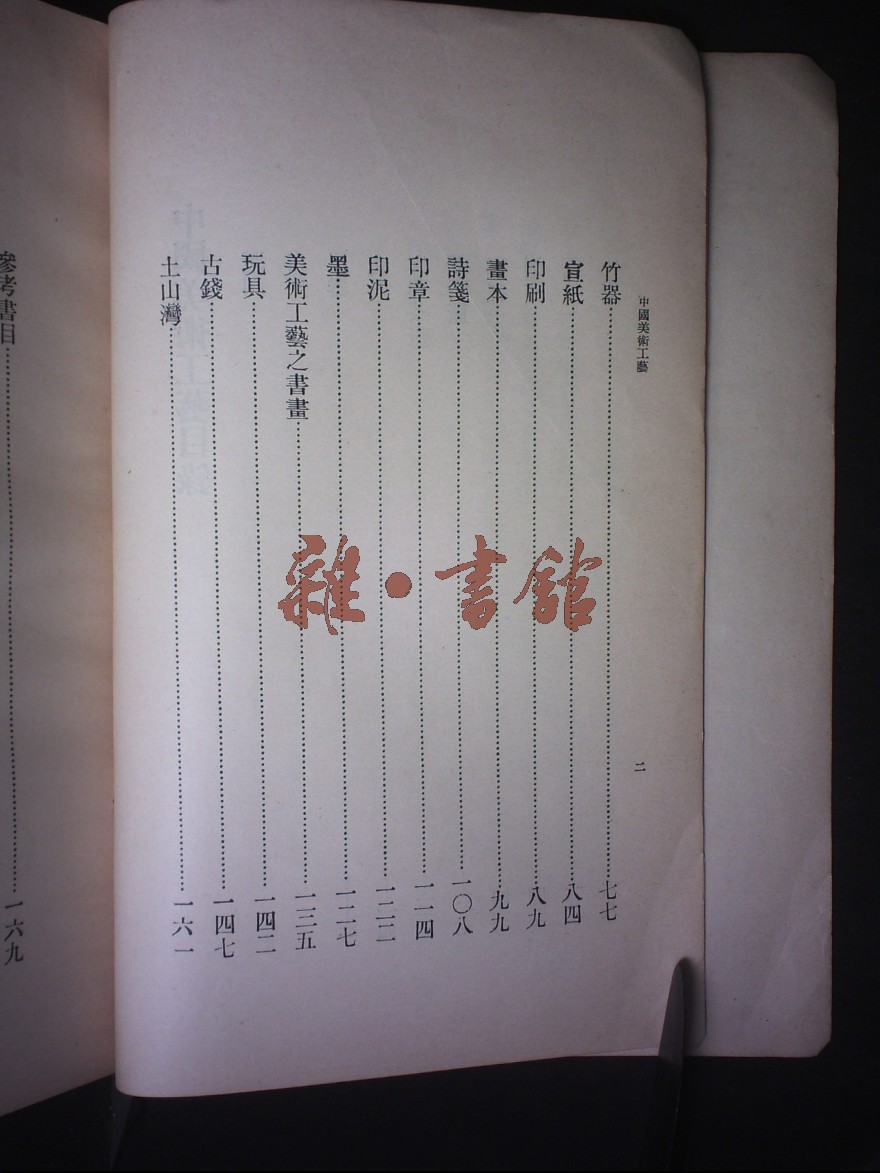 中國美術工藝
二
竹器 七七
宣紙 八四
印刷 八九
畫本 九九
詩箋 一〇八
印章 一一四
印泥 一二二
墨 一二七
美術工藝之書畫 一三五
玩具 一四二
古錢 一四七
土山灣 一六一
參考書目 一六九
雜·書館
中國美術工藝目錄